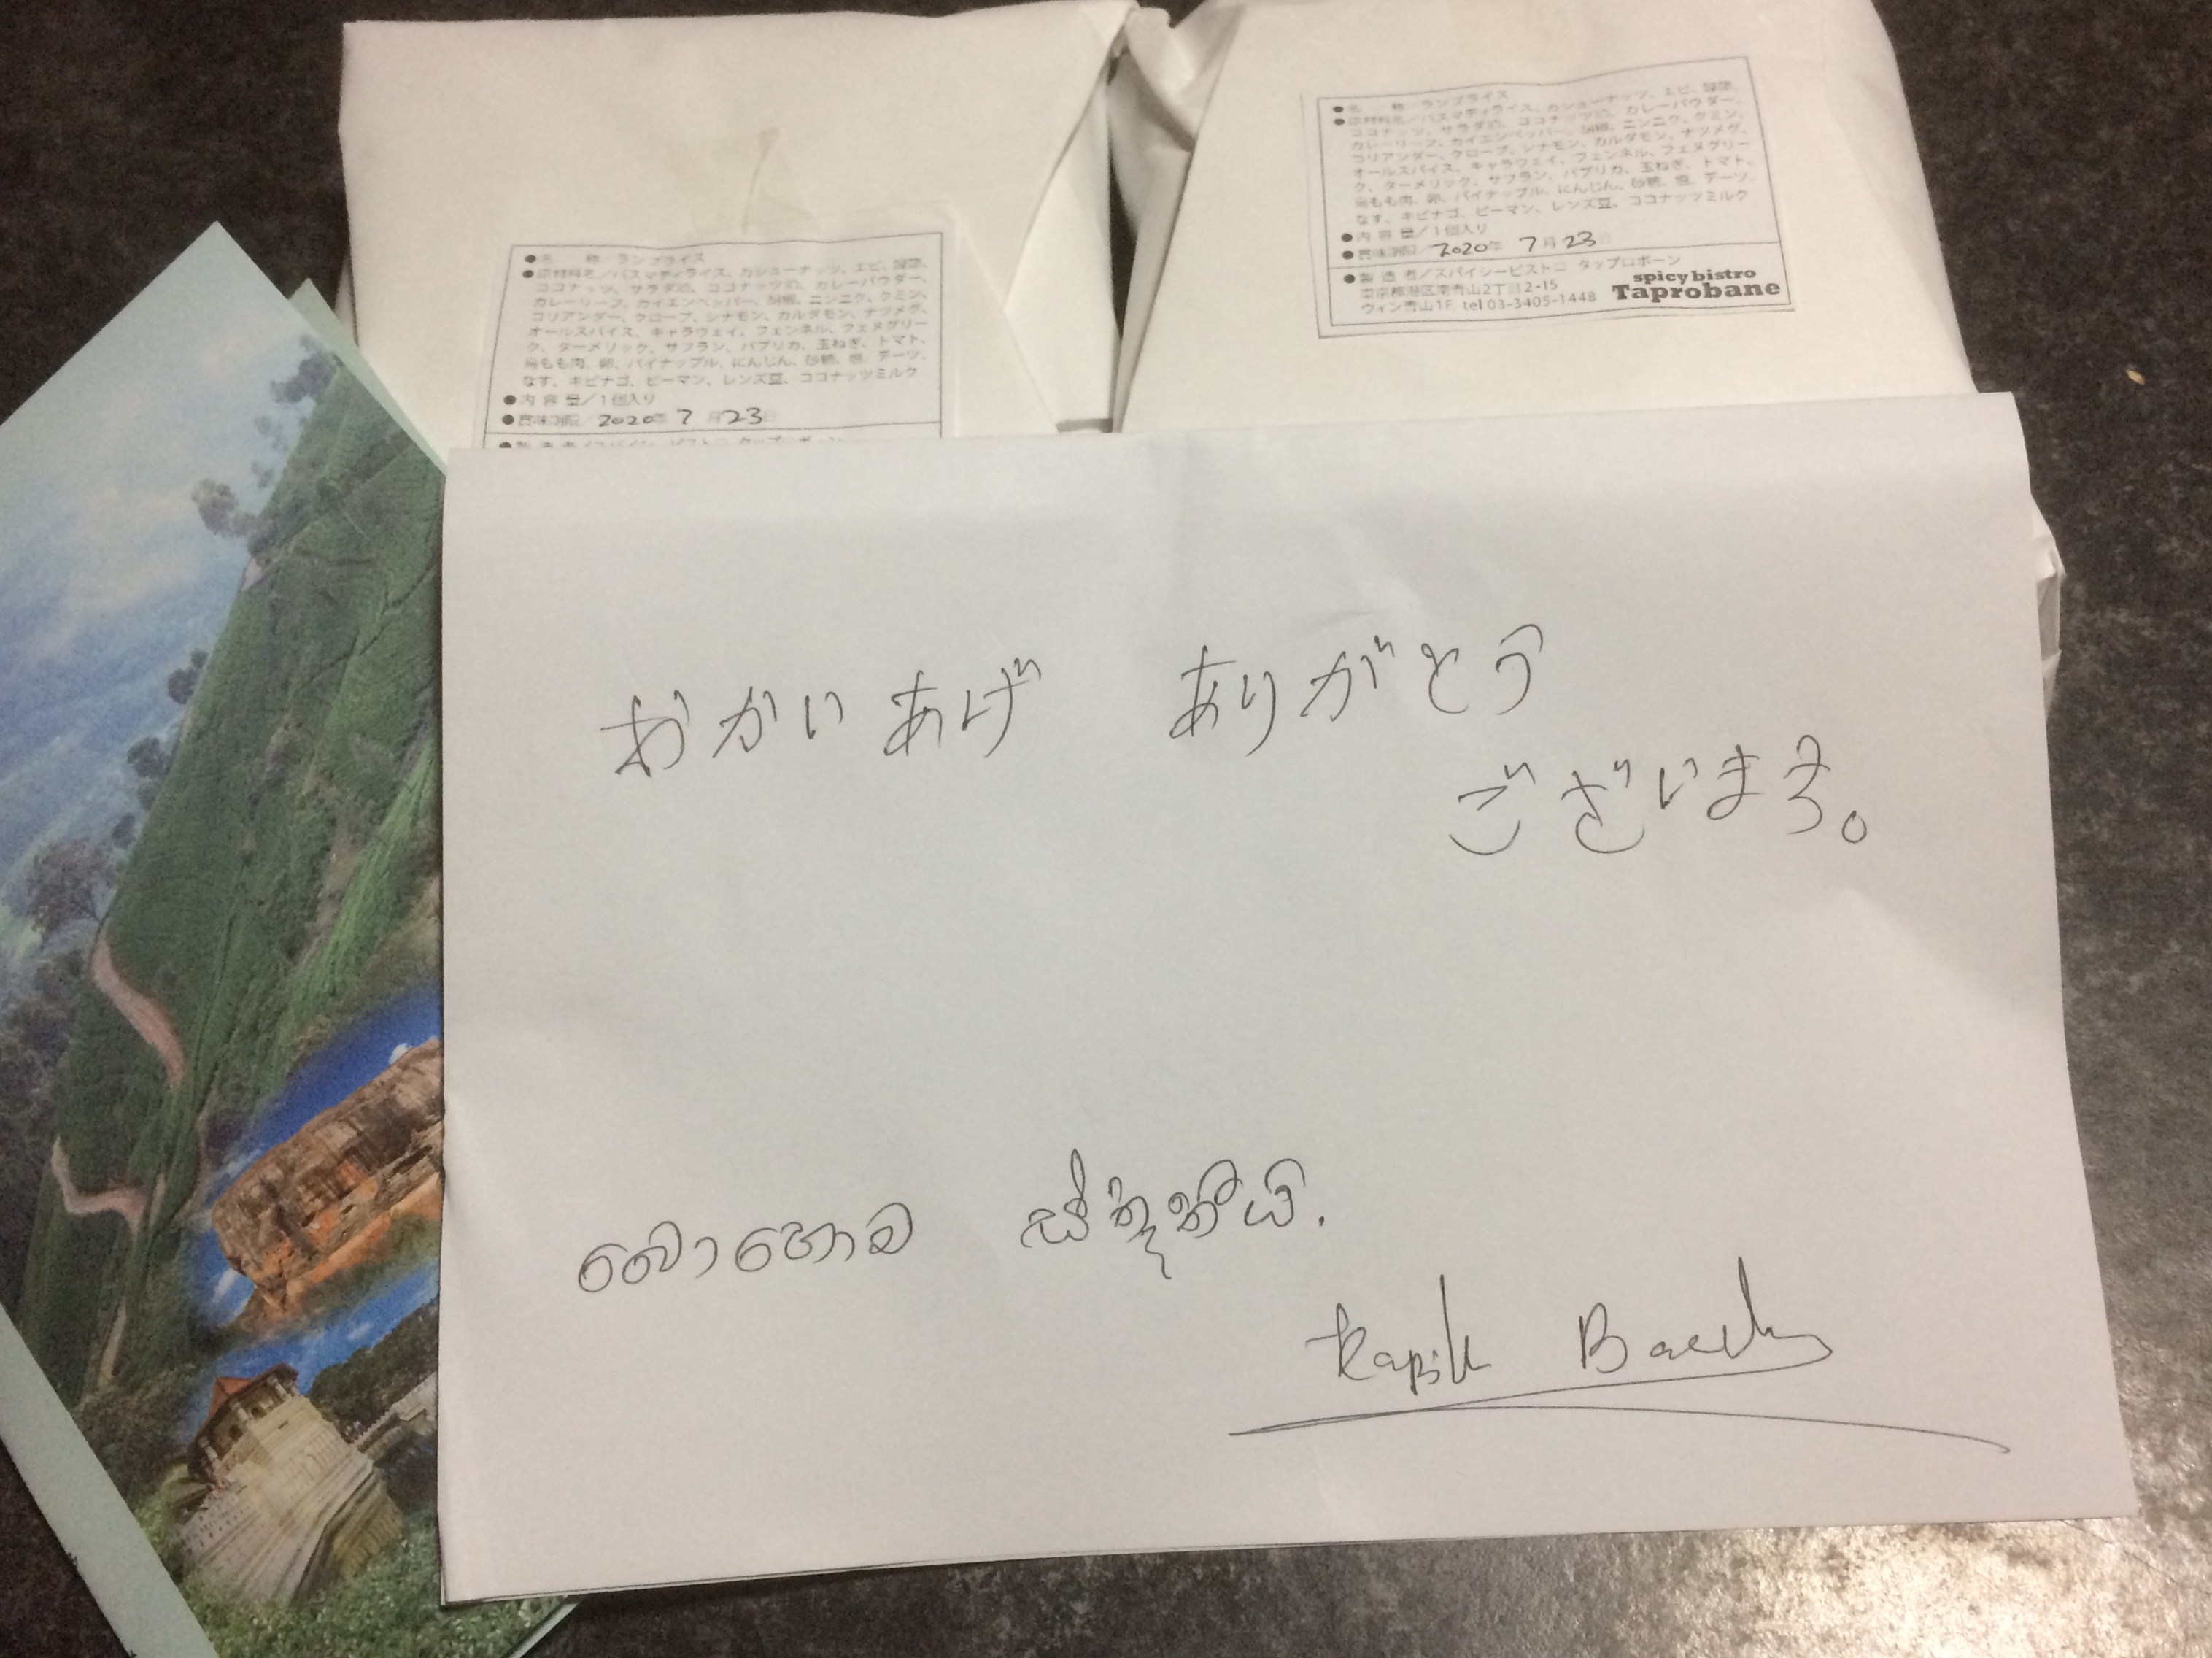 ●名　　称／ランプライス
●原材料名／バスマティライス、カシューナッツ、エビ、醤油、
ココナッツ、サラダ油、ココナッツ油、カレーパウダー、
カレーリーフ、カイエンペッパー、胡椒、ニンニク、クミン、
コリアンダー、クローブ、シナモン、カルダモン、ナツメグ、
オールスパイス、キャラウェイ、フェンネル、フェヌグリー
ク、ターメリック、サフラン、パプリカ、玉ねぎ、トマト、
鳥もも肉、卵、パイナップル、にんじん、砂糖、塩、デーツ、
なす、キビナゴ、ピーマン、レンズ豆、ココナッツミルク
●内 容 量／1個入り
●賞味期限／2020年 7月23日
●製 造 者／スパイシービストロ タップロボーン
●名　　称／ランプライス
●原材料名／バスマティライス、カシューナッツ、エビ、醤油、
ココナッツ、サラダ油、ココナッツ油、カレーパウダー、
カレーリーフ、カイエンペッパー、胡椒、ニンニク、クミン、
コリアンダー、クローブ、シナモン、カルダモン、ナツメグ、
オールスパイス、キャラウェイ、フェンネル、フェヌグリー
ク、ターメリック、サフラン、パプリカ、玉ねぎ、トマト、
鳥もも肉、卵、パイナップル、にんじん、砂糖、塩、デーツ、
なす、キビナゴ、ピーマン、レンズ豆、ココナッツミルク
●内 容 量／1個入り
●賞味期限／2020年 7月23日
●製 造 者／スパイシービストロ タップロボーン
東京都港区南青山2丁目2-15
ウィン青山1F. tel 03-3405-1448
spicy bistro
Taprobane
おかいあげ ありがとう
ございます。
බොහොම ස්තූතියි.